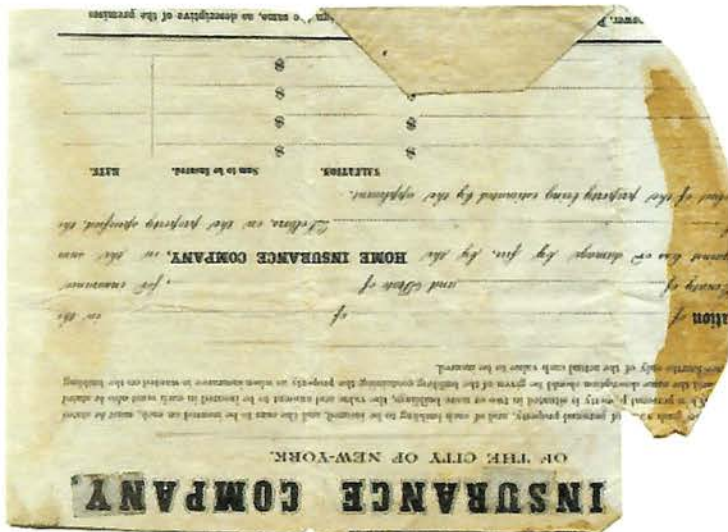 INSURANCE COMPANY,
OF THE CITY OF NEW-YORK.
of personal property, and of each building to be insured, and the sum to be insured on each, must be stated
is situated in two or more buildings, the value and amount to be insured in each must also be stated
the same description should be given of the building containing the property as when insurance is wanted on the building
only of the actual cash value to be insured.
of of in the
County of and State of , for insurance
against loss or damage by fire, by the HOME INSURANCE COMPANY, in the sum
of Dollars, on the property specified, the
value of the property being estimated by the applicant.
VALUATION. Sum to be Insured. RATE.
$ $
$ $
$ $
$
the same, as descriptive of the premises